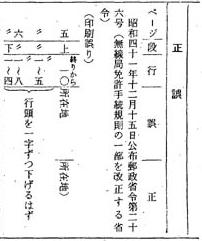 正誤
ページ 段 行 誤 正
昭和四十一年十二月十五日公布郵政省令第二十
六号(無線局免許手続規則の一部を改正する省
令)
(印刷誤り)
五 上 終りから一〇 所在地 所在地)
〃 〃 一〜五
六 〃 一〜四
〃 下 一〜八
行頭を一字ずつ下げるはず